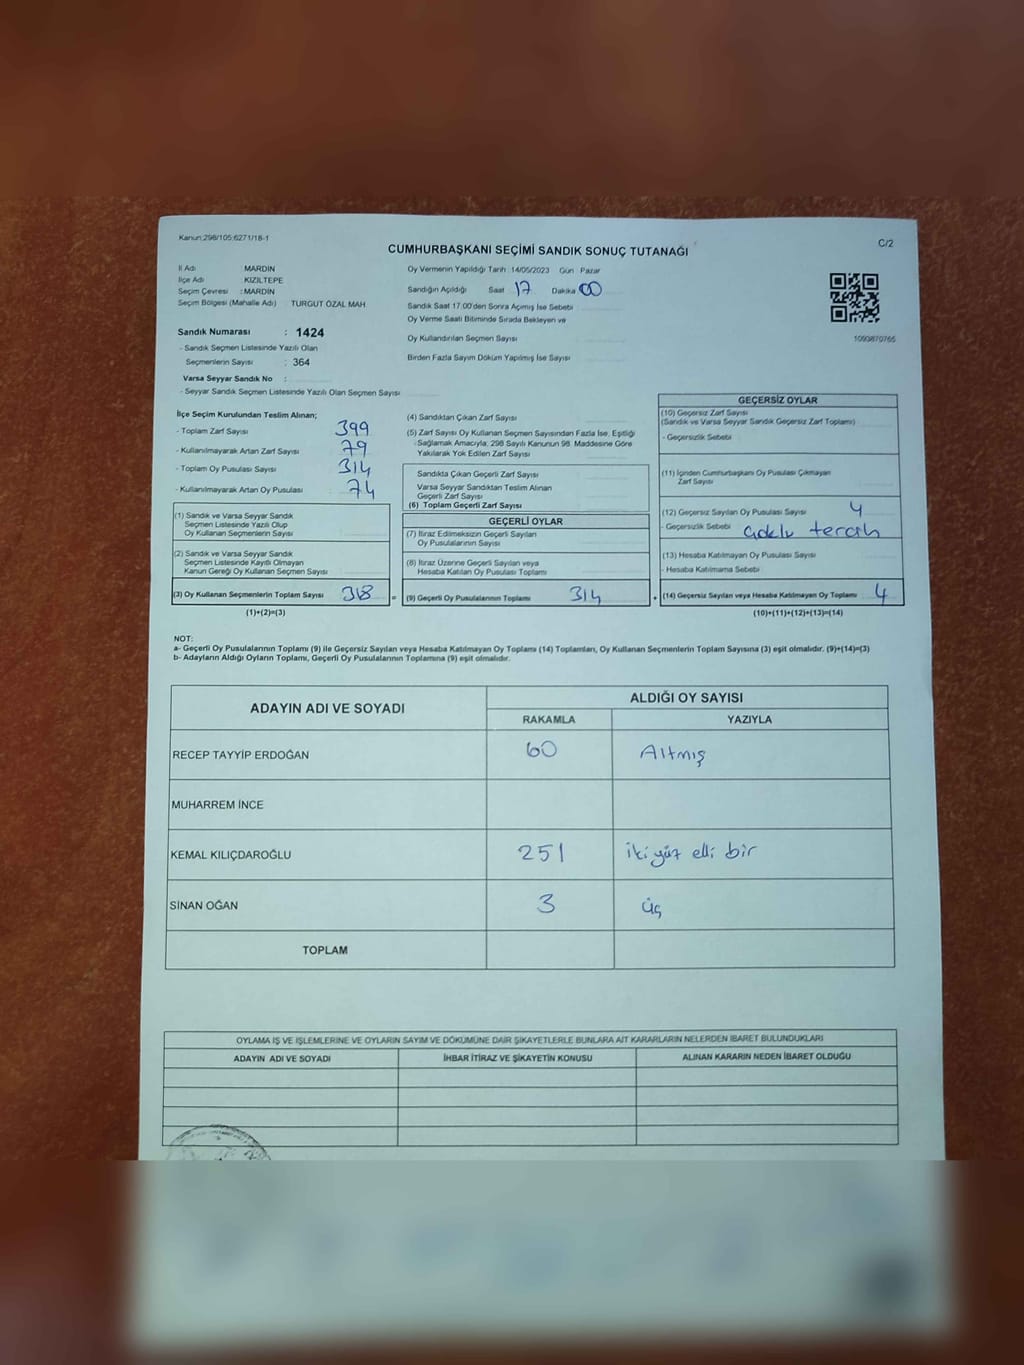 Kanun:298/105:6271/18-1
C/2
CUMHURBAŞKANI SEÇİMİ SANDIK SONUÇ TUTANAĞI
İl Adı MARDİN
İlçe Adı KIZILTEPE
Seçim Çevresi : MARDİN
Seçim Bölgesi (Mahalle Adı) : TURGUT ÖZAL MAH
Sandık Numarası : 1424
- Sandık Seçmen Listesinde Yazılı Olan
Seçmenlerin Sayısı : 364
Varsa Seyyar Sandık No :
- Seyyar Sandık Seçmen Listesinde Yazılı Olan Seçmen Sayısı
Oy Vermenin Yapıldığı Tarih 14/05/2023 Gün Pazar
Sandığın Açıldığı Saat 17 Dakika 00
Sandık Saat 17.00'den Sonra Açımış İse Sebebi
Oy Verme Saati Bitiminde Sırada Bekleyen ve
Oy Kullandırılan Seçmen Sayısı
Birden Fazla Sayım Döküm Yapılmış İse Sayısı
1093870765
İlçe Seçim Kurulundan Teslim Alınan;
- Toplam Zarf Sayısı 399
- Kullanılmayarak Artan Zarf Sayısı 79
- Toplam Oy Pusulası Sayısı 314
- Kullanılmayarak Artan Oy Pusulası 74
(1) Sandık ve Varsa Seyyar Sandık
Seçmen Listesinde Yazılı Olup
Oy Kullanan Seçmenlerin Sayısı
(2) Sandık ve Varsa Seyyar Sandık
Seçmen Listesinde Kayıtlı Olmayan
Kanun Gereği Oy Kullanan Seçmen Sayısı
(3) Oy Kullanan Seçmenlerin Toplam Sayısı 318 =
(1)+(2)=(3)
(4) Sandıktan Çıkan Zarf Sayısı
(5) Zarf Sayısı Oy Kullanan Seçmen Sayısından Fazla İse, Eşitliği
Sağlamak Amacıyla, 298 Sayılı Kanunun 98. Maddesine Göre
Yakılarak Yok Edilen Zarf Sayısı
Sandıkta Çıkan Geçerli Zarf Sayısı
Varsa Seyyar Sandıktan Teslim Alınan
Geçerli Zarf Sayısı
(6) Toplam Geçerli Zarf Sayısı
GEÇERLİ OYLAR
(7) İtiraz Edilmeksizin Geçerli Sayılan
Oy Pusulalarının Sayısı
(8) İtiraz Üzerine Geçerli Sayılan veya
Hesaba Katılan Oy Pusulası Toplamı
(9) Geçerli Oy Pusulalarının Toplamı 314 +
GEÇERSİZ OYLAR
(10) Geçersiz Zarf Sayısı
(Sandık ve Varsa Seyyar Sandık Geçersiz Zarf Toplamı)
- Geçersizlik Sebebi
(11) İçinden Cumhurbaşkanı Oy Pusulası Çıkmayan
Zarf Sayısı
(12) Geçersiz Sayılan Oy Pusulası Sayısı 4
- Geçersizlik Sebebi
(13) Hesaba Katılmayan Oy Pusulası Sayısı
- Hesaba Katılmama Sebebi
(14) Geçersiz Sayılan veya Hesaba Katılmayan Oy Toplamı 4
(10)+(11)+(12)+(13)=(14)
NOT:
a- Geçerli Oy Pusulalarının Toplamı (9) ile Geçersiz Sayılan veya Hesaba Katılmayan Oy Toplamı (14) Toplamları, Oy Kullanan Seçmenlerin Toplam Sayısına (3) eşit olmalıdır. (9)+(14)=(3)
b- Adayların Aldığı Oyların Toplamı, Geçerli Oy Pusulalarının Toplamına (9) eşit olmalıdır.
ADAYIN ADI VE SOYADI
ALDIĞI OY SAYISI
RAKAMLA YAZIYLA
RECEP TAYYİP ERDOĞAN 60 Altmış
MUHARREM İNCE
KEMAL KILIÇDAROĞLU 251 iki yüz elli bir
SİNAN OĞAN 3 üç
TOPLAM
OYLAMA İŞ VE İŞLEMLERİNE VE OYLARIN SAYIM VE DÖKÜMÜNE DAİR ŞİKAYETLERLE BUNLARA AİT KARARLARIN NELERDEN İBARET BULUNDUKLARI
ADAYIN ADI VE SOYADI İHBAR İTİRAZ VE ŞİKAYETİN KONUSU ALINAN KARARIN NEDEN İBARET OLDUĞU